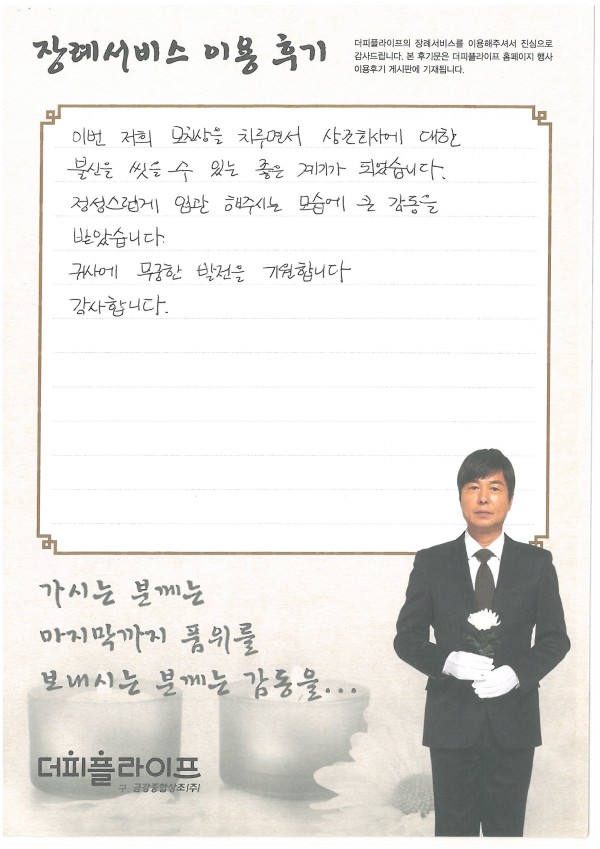 장례서비스 이용 후기
더피플라이프의 장례서비스를 이용해주셔서 진심으로
감사드립니다. 본 후기문은 더피플라이프 홈페이지 행사
이용후기 게시판에 기재됩니다.
이번 저희 모친상을 치루면서 상조회사에 대한
불신을 씻을 수 있는 좋은 계기가 되었습니다.
정성스럽게 입관 해주시는 모습에 큰 감동을
받았습니다.
귀사에 무궁한 발전을 기원합니다
감사합니다.
가시는 분께는
마지막까지 품위를
보내시는 분께는 감동을...
더피플라이프
구. 금강종합상조(주)